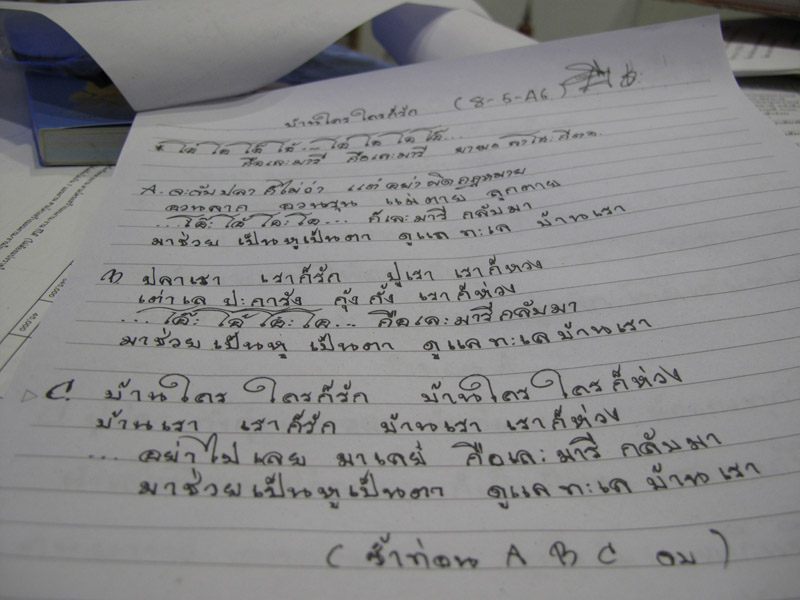 บ้านใครใครก็รัก (8-5-A6)
* โอ้ โอ้ โอ้ โอ้ ... โอ้ โอ้ โอ้ โอ้ ...
กือเละมารี กือเละมารี
A. จะจับปลาก็ไม่ว่า แต่อย่าผิดกฎหมาย
อวนลาก อวนรุน แม่ตาย ลูกตาย
มาช่วย เป็นหูเป็นตา ดูแล ทะเล บ้านเรา
B ปลาเรา เราก็รัก ปูเรา เราก็หวง
เต่าเล ปะการัง กุ้งกั้ง เราก็ห่วง
กือเละมารีกลับมา
มาช่วย เป็นหู เป็นตา ดูแล ทะเล บ้านเรา
C. บ้านใคร ใครก็รัก บ้านใคร ใครก็ห่วง
บ้านเรา เราก็รัก บ้านเรา เราก็ห่วง
... อย่าไปเลย มาเลย์ กือเละมารี กลับมา
มาช่วย เป็นหูเป็นตา ดูแล ทะเล บ้านเรา
(ซ้ำท่อน A B C จบ)